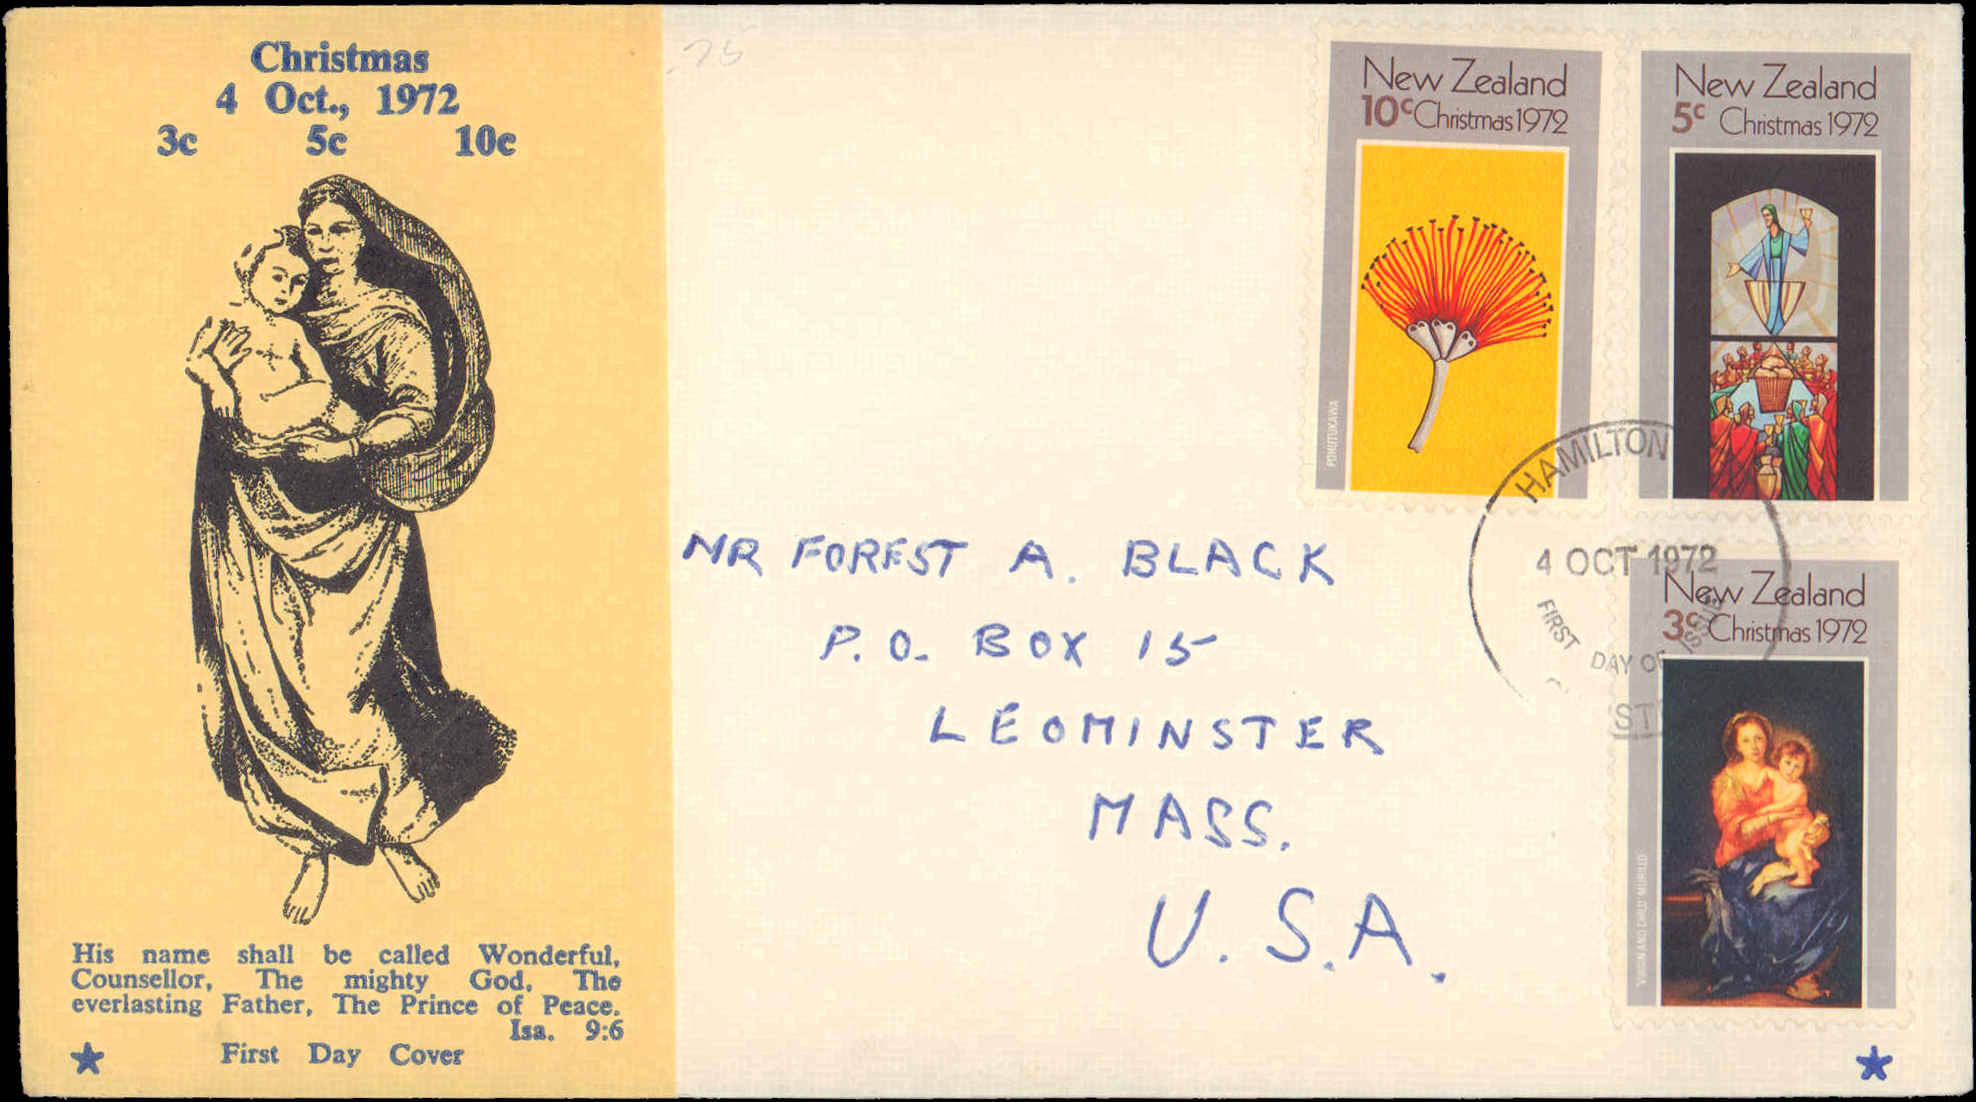 Christmas
4 Oct., 1972
3c 5c 10c
His name shall be called Wonderful,
Counsellor, The mighty God, The
everlasting Father, The Prince of Peace.
Isa. 9:6
First Day Cover
.75
New Zealand
10c Christmas 1972
POHUTUKAWA
New Zealand
5c Christmas 1972
HAMILTON
4 OCT 1972
FIRST DAY OF ISSUE
New Zealand
3c Christmas 1972
'VIRGIN AND CHILD' MURILLO
MR FOREST A. BLACK
P.O. BOX 15
LEOMINSTER
MASS.
U.S.A.